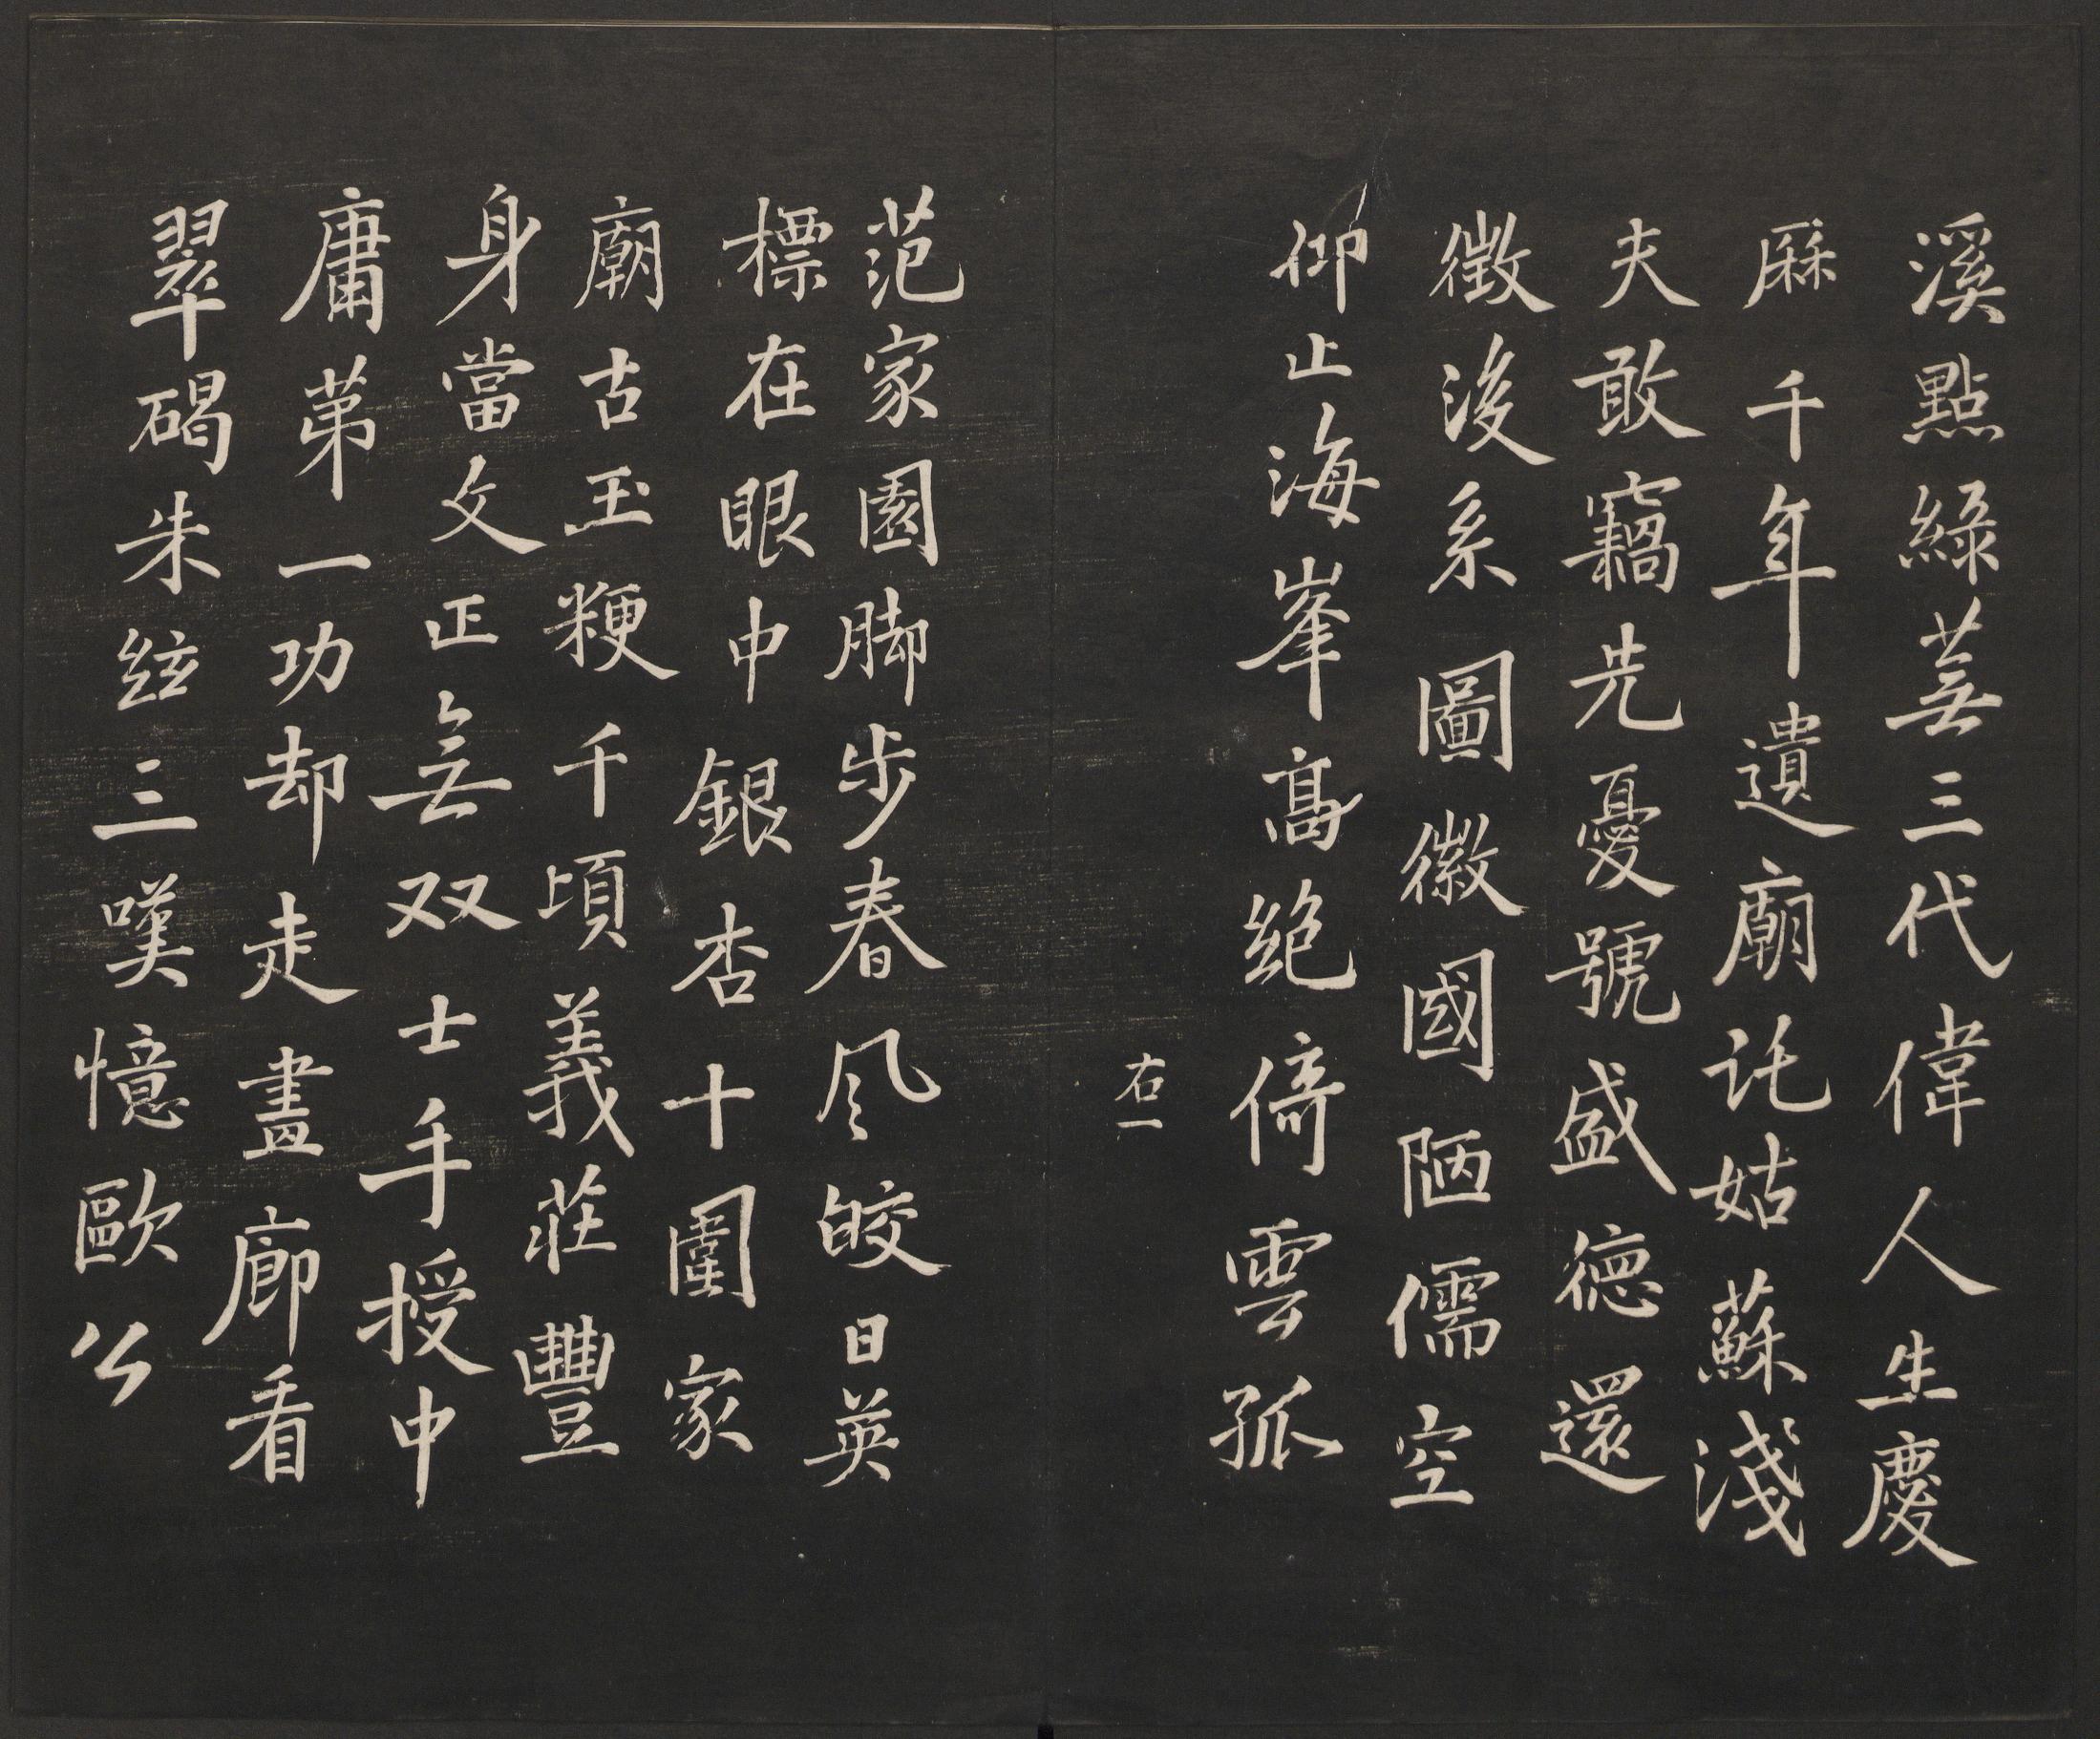 溪點綠蕪三代偉人生慶
厤千年遺廟託姑蘇淺
夫敢竊先憂號盛德還
徴後系圖徽國陋儒空
仰止海峯高絶倚雲孤
右一
范家園脚步春风皎日英
標在眼中銀杏十圍家
廟古玉粳千頃義莊豐
身當文正無双士手授中
庸苐一功却走畫廊看
翠碣朱絃三嘆憶歐公